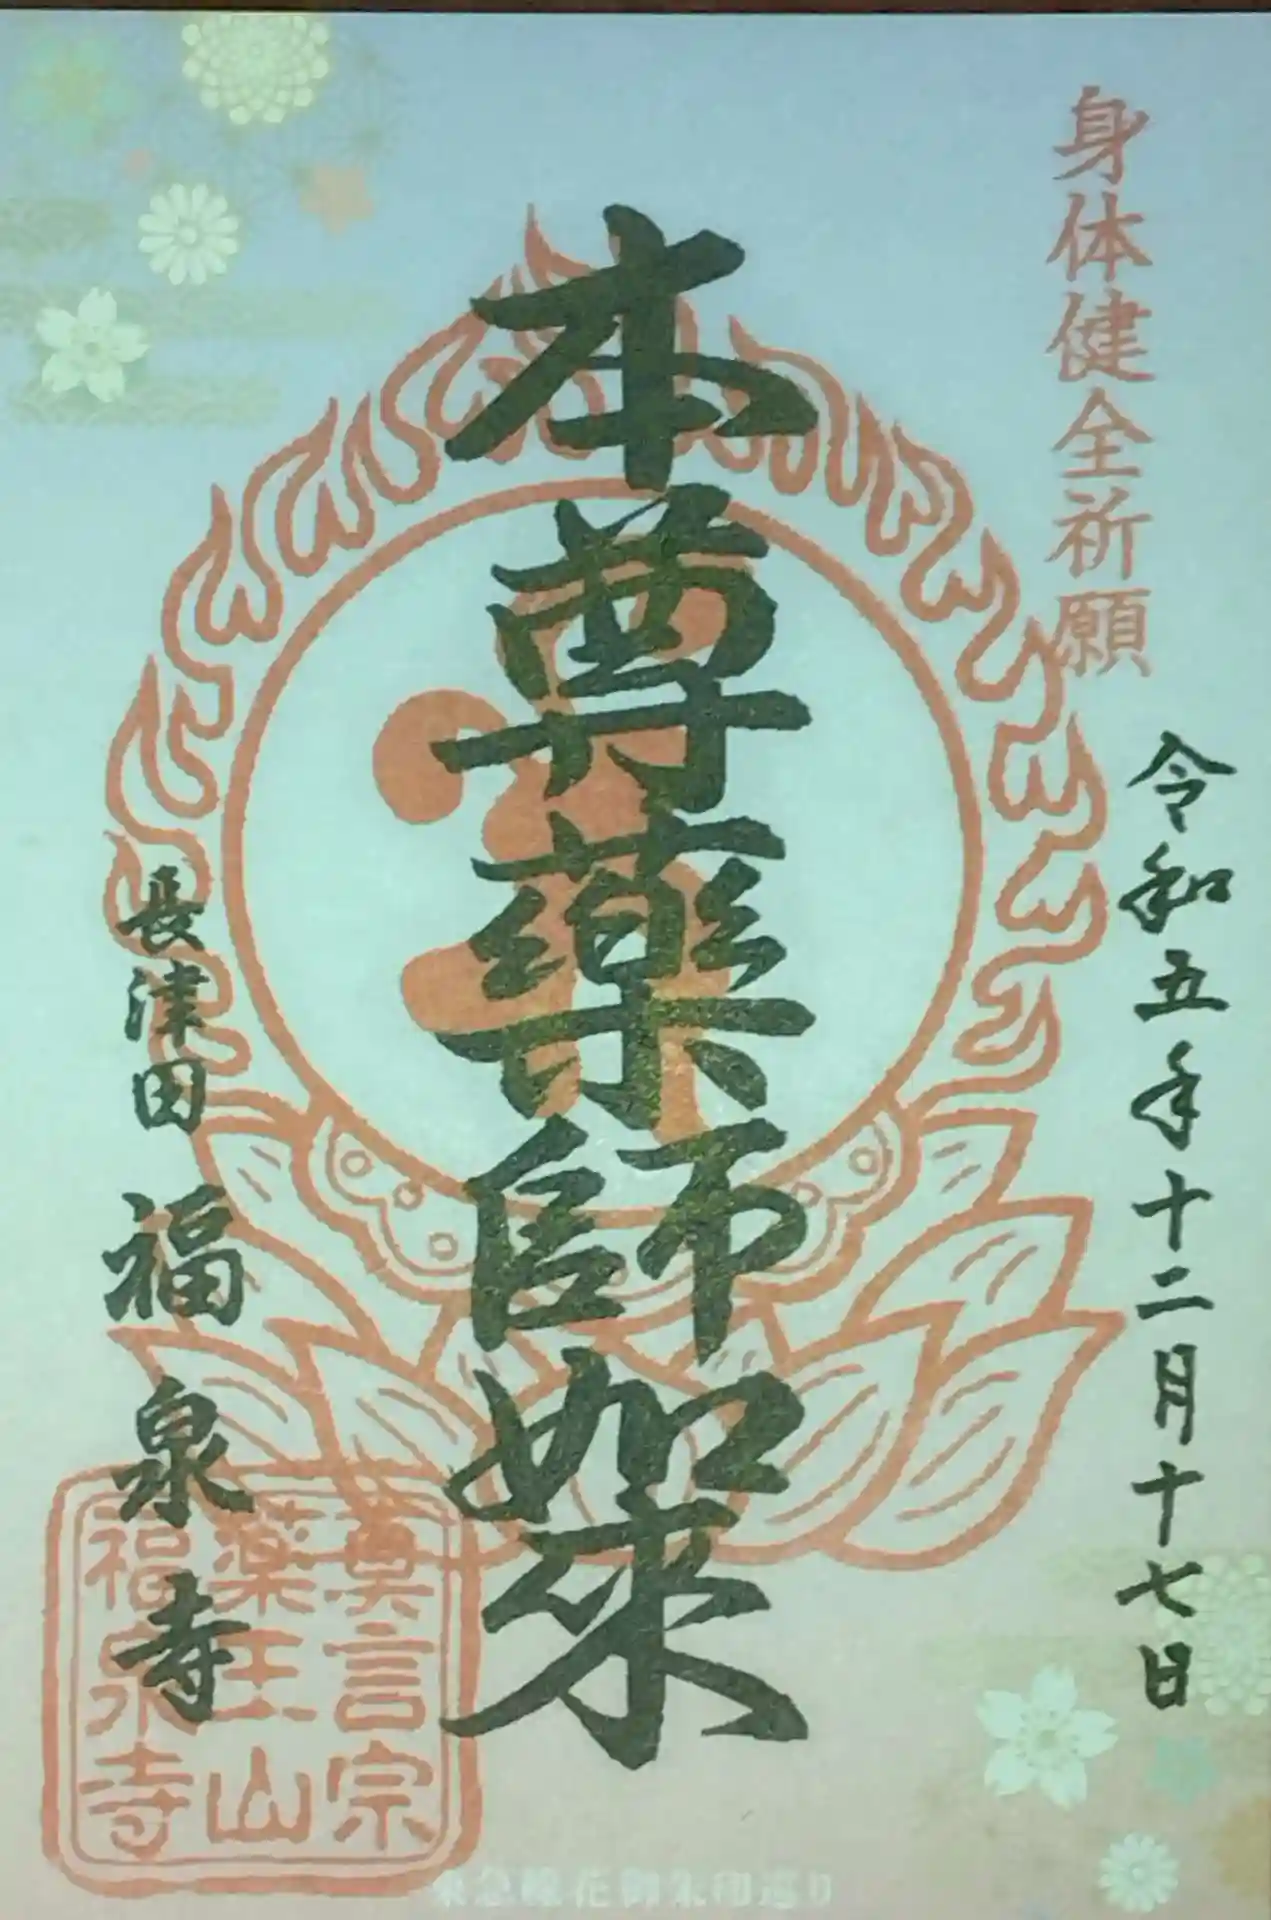 身体健全祈願
令和五年十二月十七日
本尊薬師如来
長津田 福泉寺
真言宗
薬王山
福泉寺
東急線花御朱印巡り